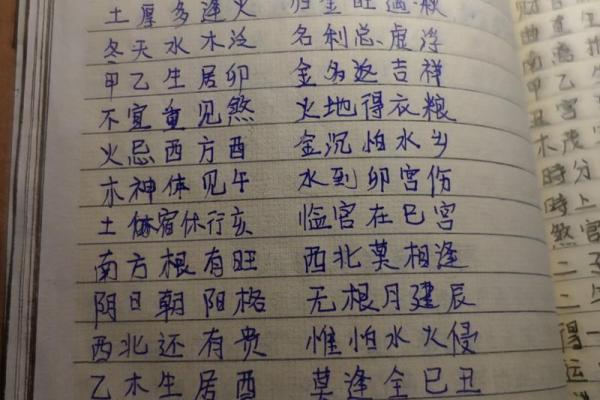 土厚多逢火 归金旺遇秋
冬天水木泛 名利总虚浮
甲乙生居卯 金多返吉祥
不宜重见煞 火地得衣粮
火忌西方酉 金沉怕水乡
木神休见午 水到卯宫伤
土宿休行亥 临官在巳宫
南方根有旺 西北莫相逢
阴日朝阳格 无根月建辰
西北还有贵 惟怕水火侵
乙木生居酉 莫逢全巳丑
南
甲乙
丑宫
木茂
時分
時上
煞官
二
二
得一
运